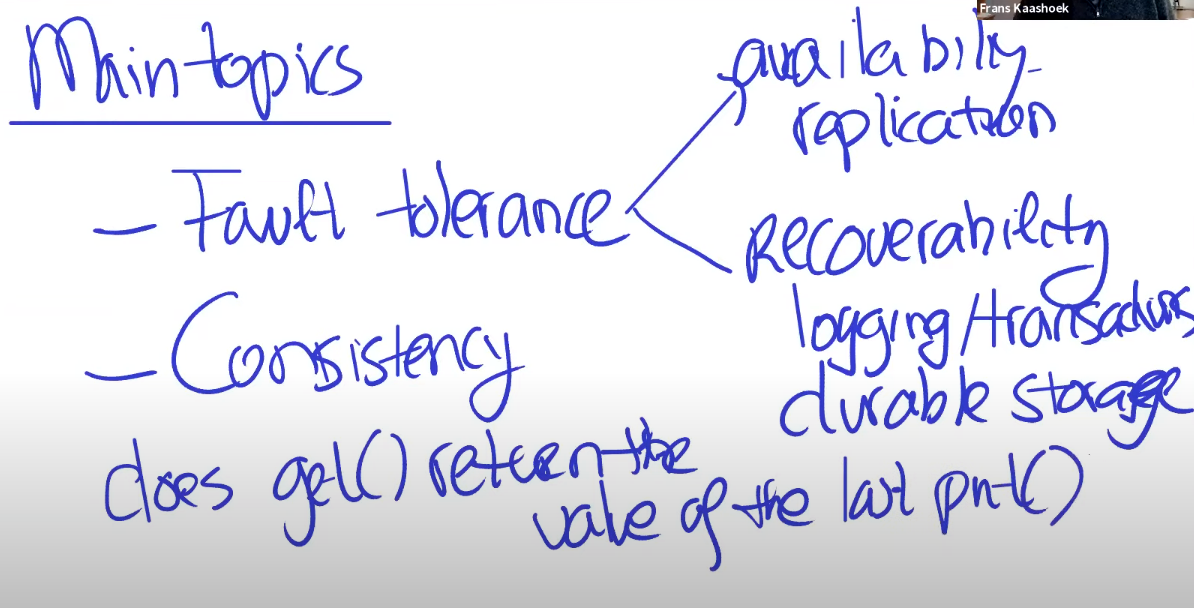 Frans Kaashoek
Main topics
availability
replication
- Fault tolerance
Recoverability
logging/transactions
durable storage
- Consistency
does get() return the
value of the last put()